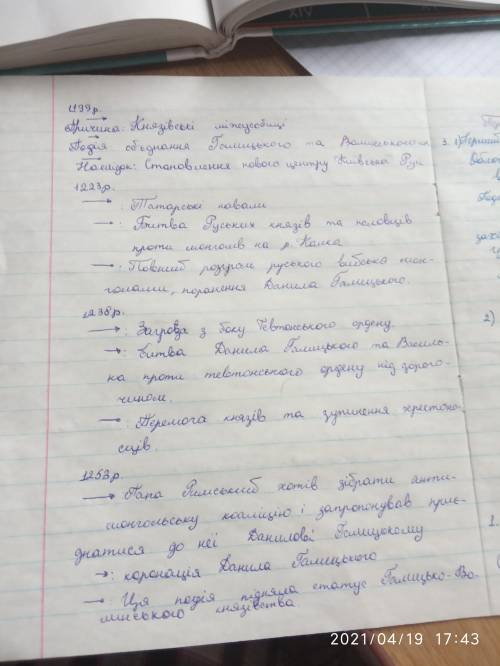 1199р.
Причина: Князівські міжусобиці
Подія об'єднання Галицького та Волинського к
Наслідок: Становлення нового центру Київська Русь
1223р.
→: Татарські навали
→: Битва Руських князів та половців
проти монголів на р. Калка
→: Повний розгром руського війська мон-
голами, поранення Данила Галицького.
1238р.
→: Загроза з боку Тевтонського ордену.
→: Битва Данила Галицького та Василь-
ка проти тевтонського ордену під Дороги-
чином.
→: Перемога князів та зупинення хрестоно-
сців.
1253р.
→ Папа Римський хотів зібрати анти-
монгольську коаліцію і запропонував приє-
днатися до неї Данилові Галицькому
→: коронація Данила Галицького
→ Ця подія підняла статус Галицько-Во-
линського князівства.
3. 1)
2)
1.
2021/04/19 17:43
XIV